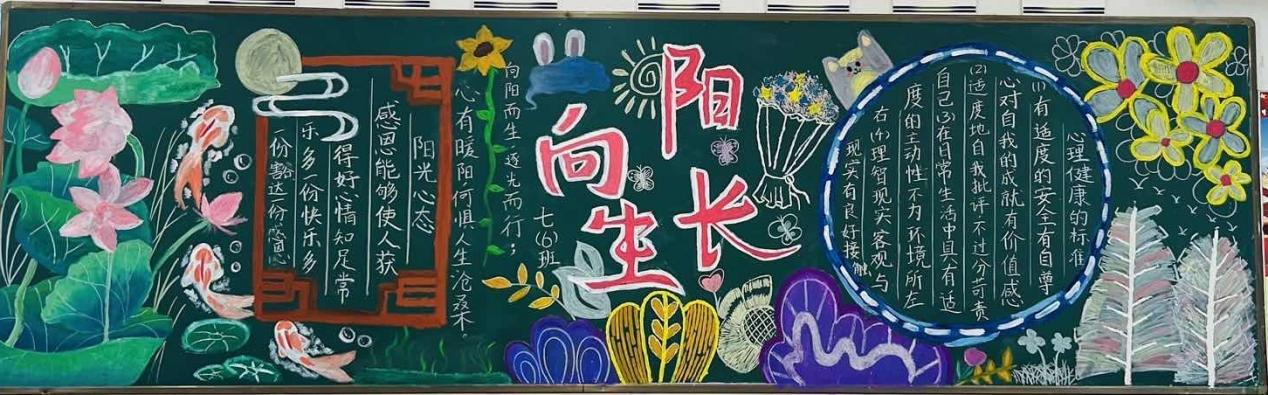 向阳生长
阳光心态
感恩能够使人获
得好心情知足常
乐多一份快乐多
一份豁达一份感恩
向阳而生,逐光而行;
心有暖阳何惧人生沧桑。
七(6)班
心理健康的标准
(1)有适度的安全有自尊
心对自我的成就有价值感
(2)适度地自我批评不过分苛责
自己(3)在日常生活中具有适
度的主动性不为环境所左
右(4)理智现实客观与
现实有良好接触